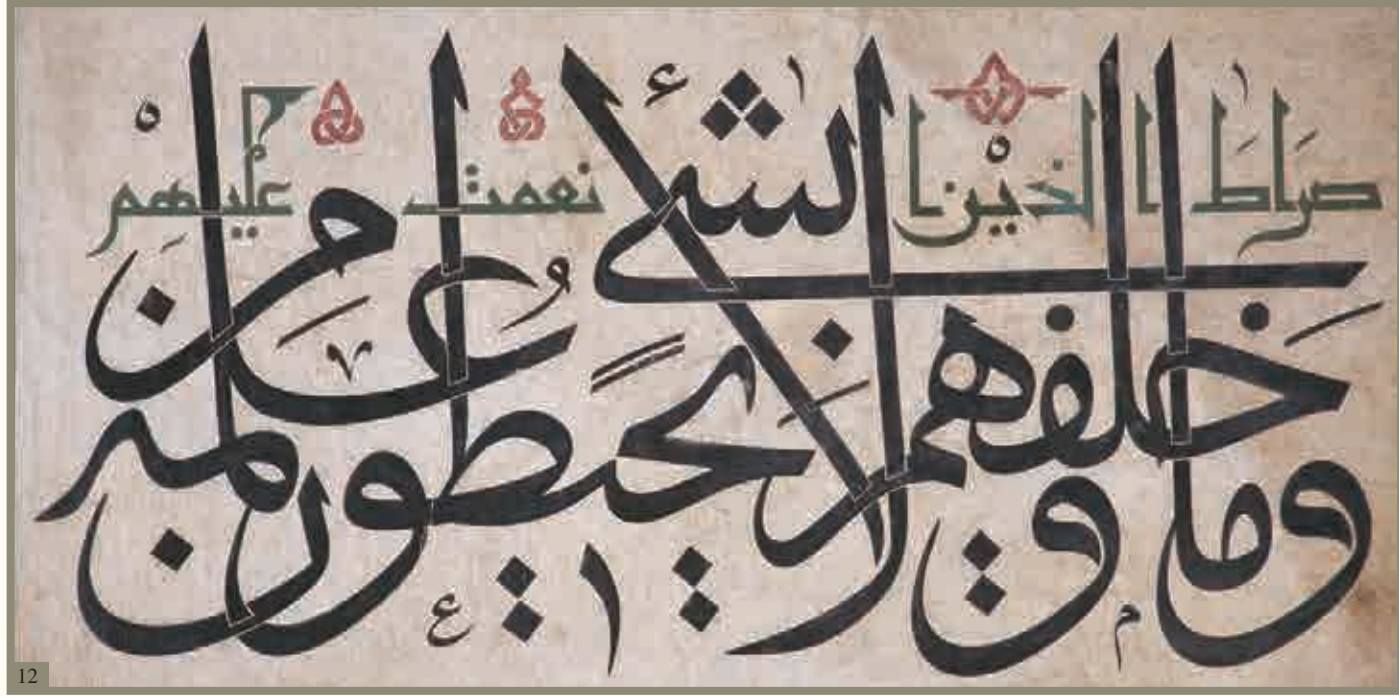 صراط الذين انعمت عليهم
وما خلفهم ولا يحيطون بشئ من علمه
12